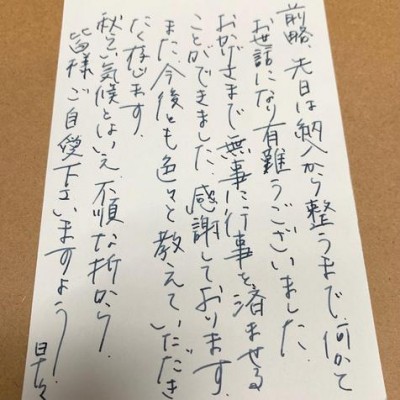 前略、先日は納入から整うまで、何かて
お世話になり有難うございました。
おかげさまで無事に行事を済ませる
ことができました。感謝しております。
また、今後とも色々と教えていただき
たく存じます。
秋らしい気候とはいえ、不順な折から、
皆様ご自愛下さいますよう。
早々